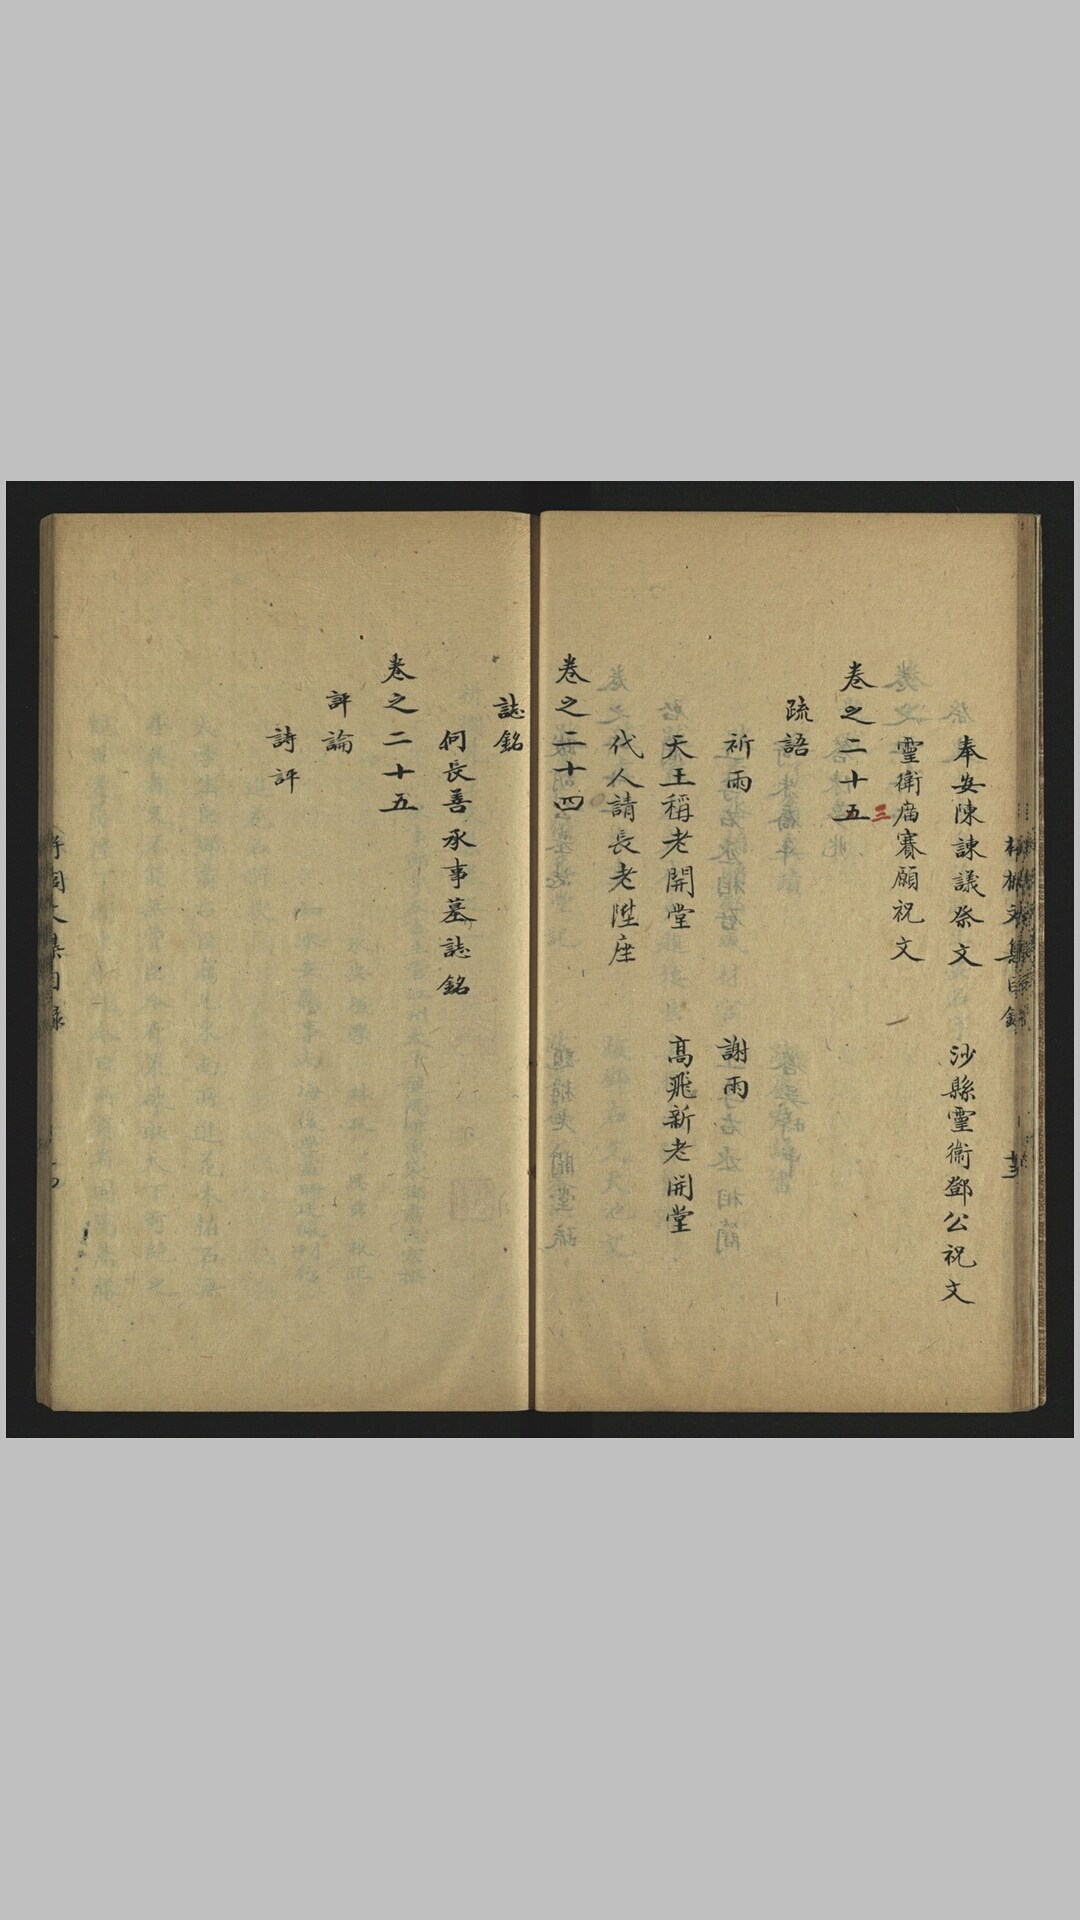 奉安陳諫議祭文 沙縣靈衛鄧公祝文
靈衛庿賽願祝文
卷之二十五 三
疏語
祈雨 謝雨
天王稱老開堂 高飛新老開堂
代人請長老陞座
卷之二十四
誌銘
何長善承事墓誌銘
卷之二十五
評論
詩評